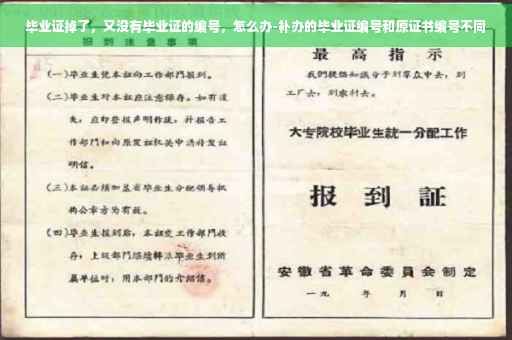 毕业证掉了，又没有毕业证的编号，怎么办-补办的毕业证编号和原证书编号不同
报到注意事项
(一)毕业生凭本证向工作部门报到。
(二)毕业生对本证应注意保存。如有遗
失，应即登报声明作废，并报告工
作部门和向原发证机关申请补发证
明信。
(三)本证必须加盖省毕业生分配领导机
构公章方为有效。
(四)毕业生报到后，本证交工作部门收
存，上级部门继续转派毕业生到所
属单位时，用本部门的介绍信。
最高指示
我们提倡知识分子到羣众中去，到
工厂去，到农村去。
大专院校毕业生統一分配工作
报到証
安徽省革命委員会制定
一九 年 月 日